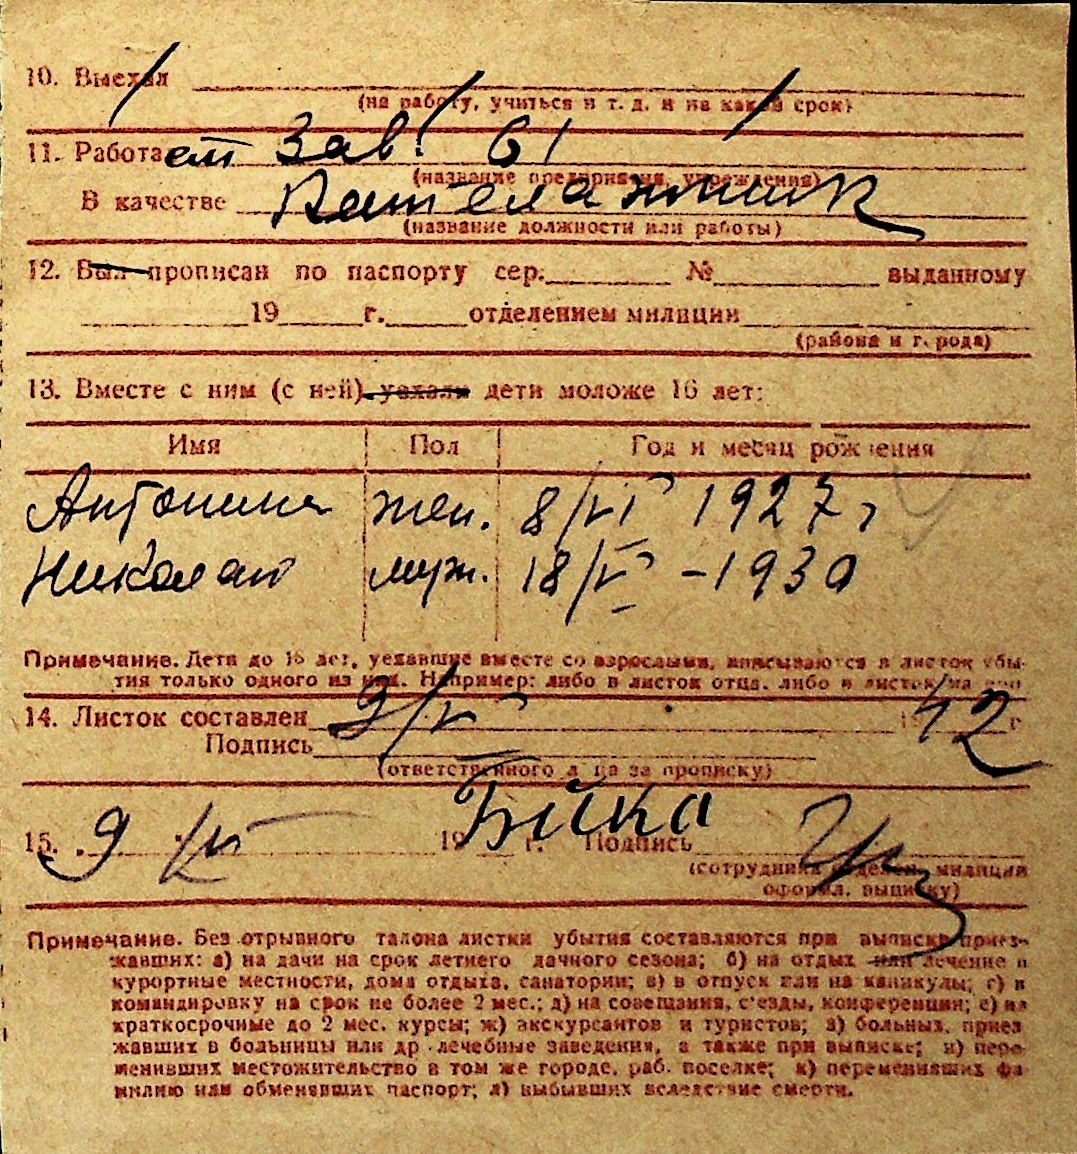 10. Выехал
(на работу, учиться и т. д. и на какой срок)
11. Работает Зав. 61
(название предприятия, учреждения)
В качестве
(название должности или работы)
12. Был прописан по паспорту сер. № выданному
19 г. отделением милиции
(района и города)
13. Вместе с ним (с ней) уехали дети моложе 16 лет:
Имя Пол Год и месяц рождения
Антонина жен. 8/VI 1927 г
Николай муж. 18/V - 1930
Примечание. Дети до 16 лет, уехавшие вместе со взрослыми, вписываются в листок убы-
тия только одного из них. Например: либо в листок отца, либо в листок
14. Листок составлен 9/V 1942 г
Подпись
(ответственного лица за прописку)
15. 9 19 г. Подпись
(сотрудника отделен. милиции
оформил. выписку)
Примечание. Без отрывного талона листки убытия составляются при выписке приез-
жавших: а) на дачи на срок летнего дачного сезона; б) на отдых или лечение в
курортные местности, дома отдыха, санатории; в) в отпуск или на каникулы; г) в
командировку на срок не более 2 мес.; д) на совещания, съезды, конференции; е) на
краткосрочные до 2 мес. курсы; ж) экскурсантов и туристов; з) больных, приез
жавших в больницы или др лечебные заведения, а также при выписке; и) пере-
менивших местожительство в том же городе, раб. поселке; к) переменивших фа
милию или обменявших паспорт; л) выбывших вследствие смерти.